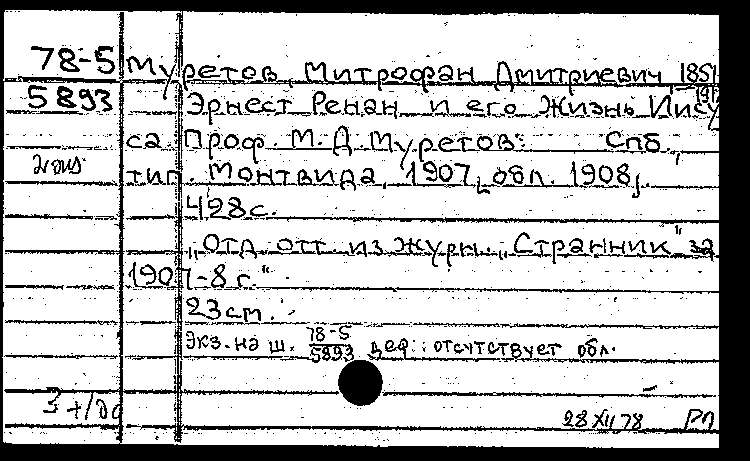 78-5 Муретов, Митрофан Дмитриевич 1851
5893 Эрнест Ренан и его Жизнь Иису
са. Проф. М. Д. Муретов. Спб.,
тип. Монтвида, 1907 [обл. 1908].
428 с.
„Отд. отт. из журн. „Странник" за
1907-8 г."
23 см.
Экз. на ш. 78-5/5893 деф.: отсутствует обл.
28 XII 78 РП